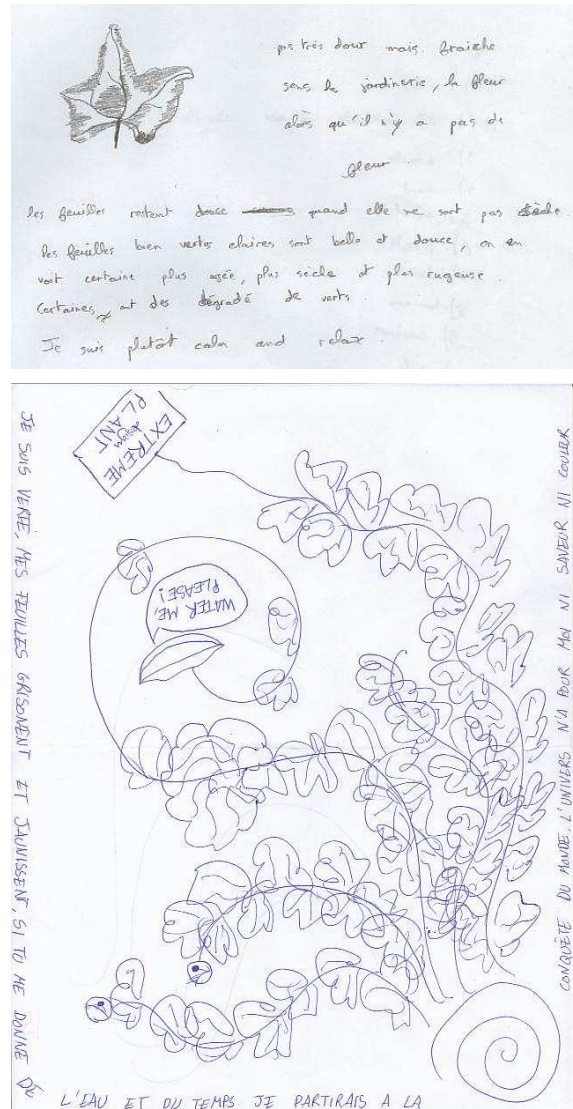 pas très doux mais fraiche
sens la jardinerie, la fleur
alors qu'il n'y a pas de
fleur.
les feuilles restent douce quand elle ne sont pas sèche.
les feuilles bien vertes claires sont belle et douce, on en
voit certaine plus agée, plus sèche et plus rugeuse.
Certaines ont des dégradé de verts.
Je suis plutôt calm and relax.
EXTREME
design
PLANT
WATER ME,
PLEASE!
JE SUIS VERTE, MES FEUILLES GRISONENT ET JAUNISSENT, SI TU ME DONNE DE
L'EAU ET DU TEMPS JE PARTIRAIS A LA
CONQUÈTE DU MONDE, L'UNIVERS N'A POUR MOI NI SAVEUR NI COULEUR